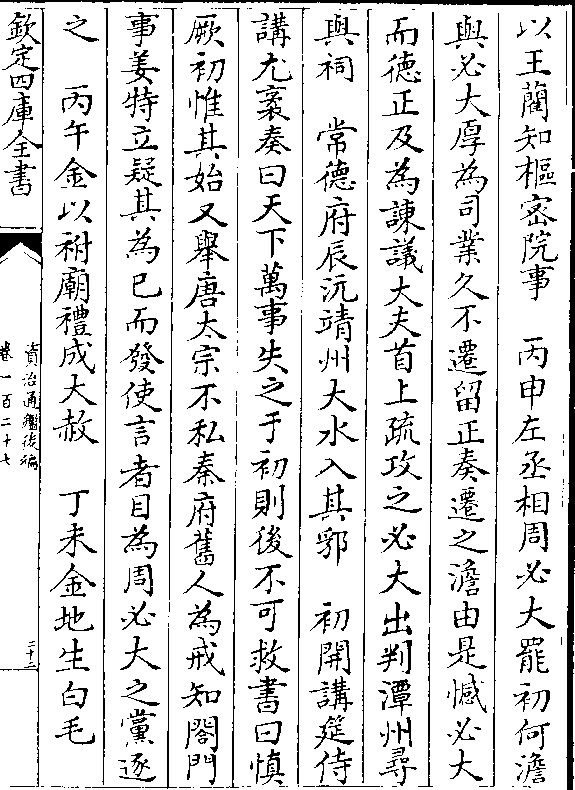 以王藺知樞密院事　丙申左丞相周必大罷初何澹
與必大厚為司業久不遷留正奏遷之澹由是憾必大
而德正及為諫議大夫首上疏攻之必大出判潭州尋
與祠　常德府辰沅靖州大水入其郛　初開講筵侍
講尤袤奏曰天下萬事失之于初則後不可救書曰慎
厥初惟其始又舉唐太宗不私秦府舊人為戒知閤門
事姜特立疑其為已而發使言者目為周必大之黨逐
之　丙午金以祔廟禮成大赦　丁未金地生白毛
欽定四庫全書
資治通鑑後編
卷一百二十七
三十二